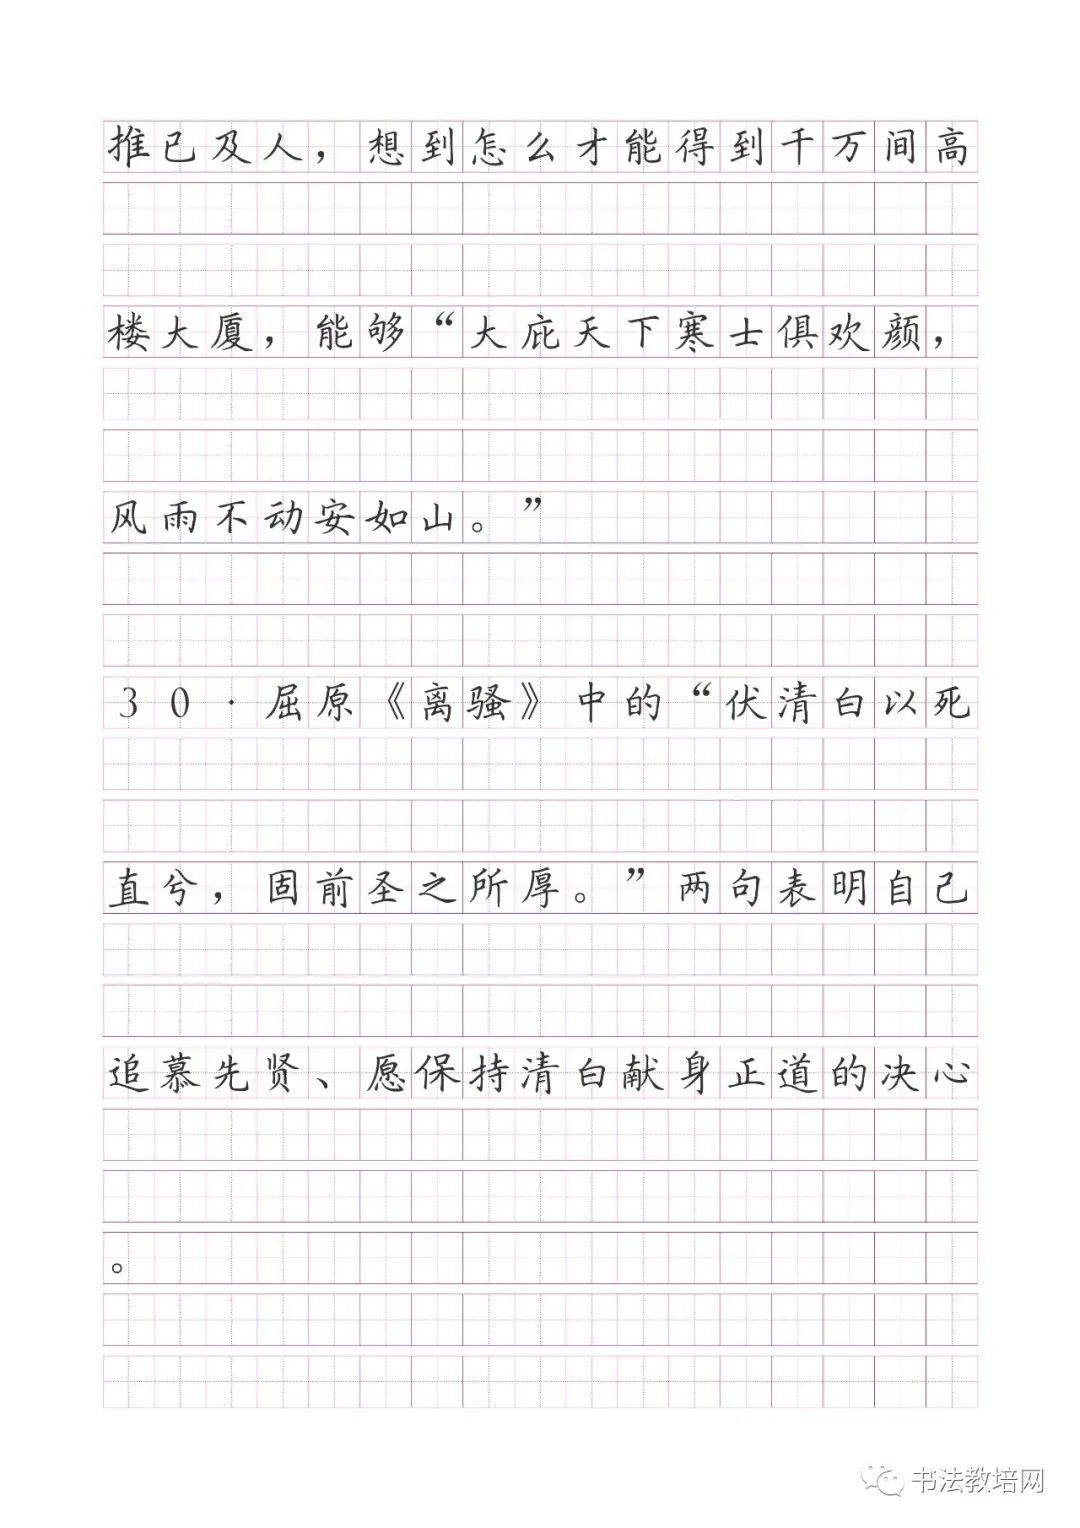 推已及人，想到怎么才能得到千万间高
楼大厦，能够“大庇天下寒士俱欢颜，
风雨不动安如山。”
30·屈原《离骚》中的“伏清白以死
直兮，固前圣之所厚。”两句表明自己
追慕先贤、愿保持清白献身正道的决心
。
书法教培网